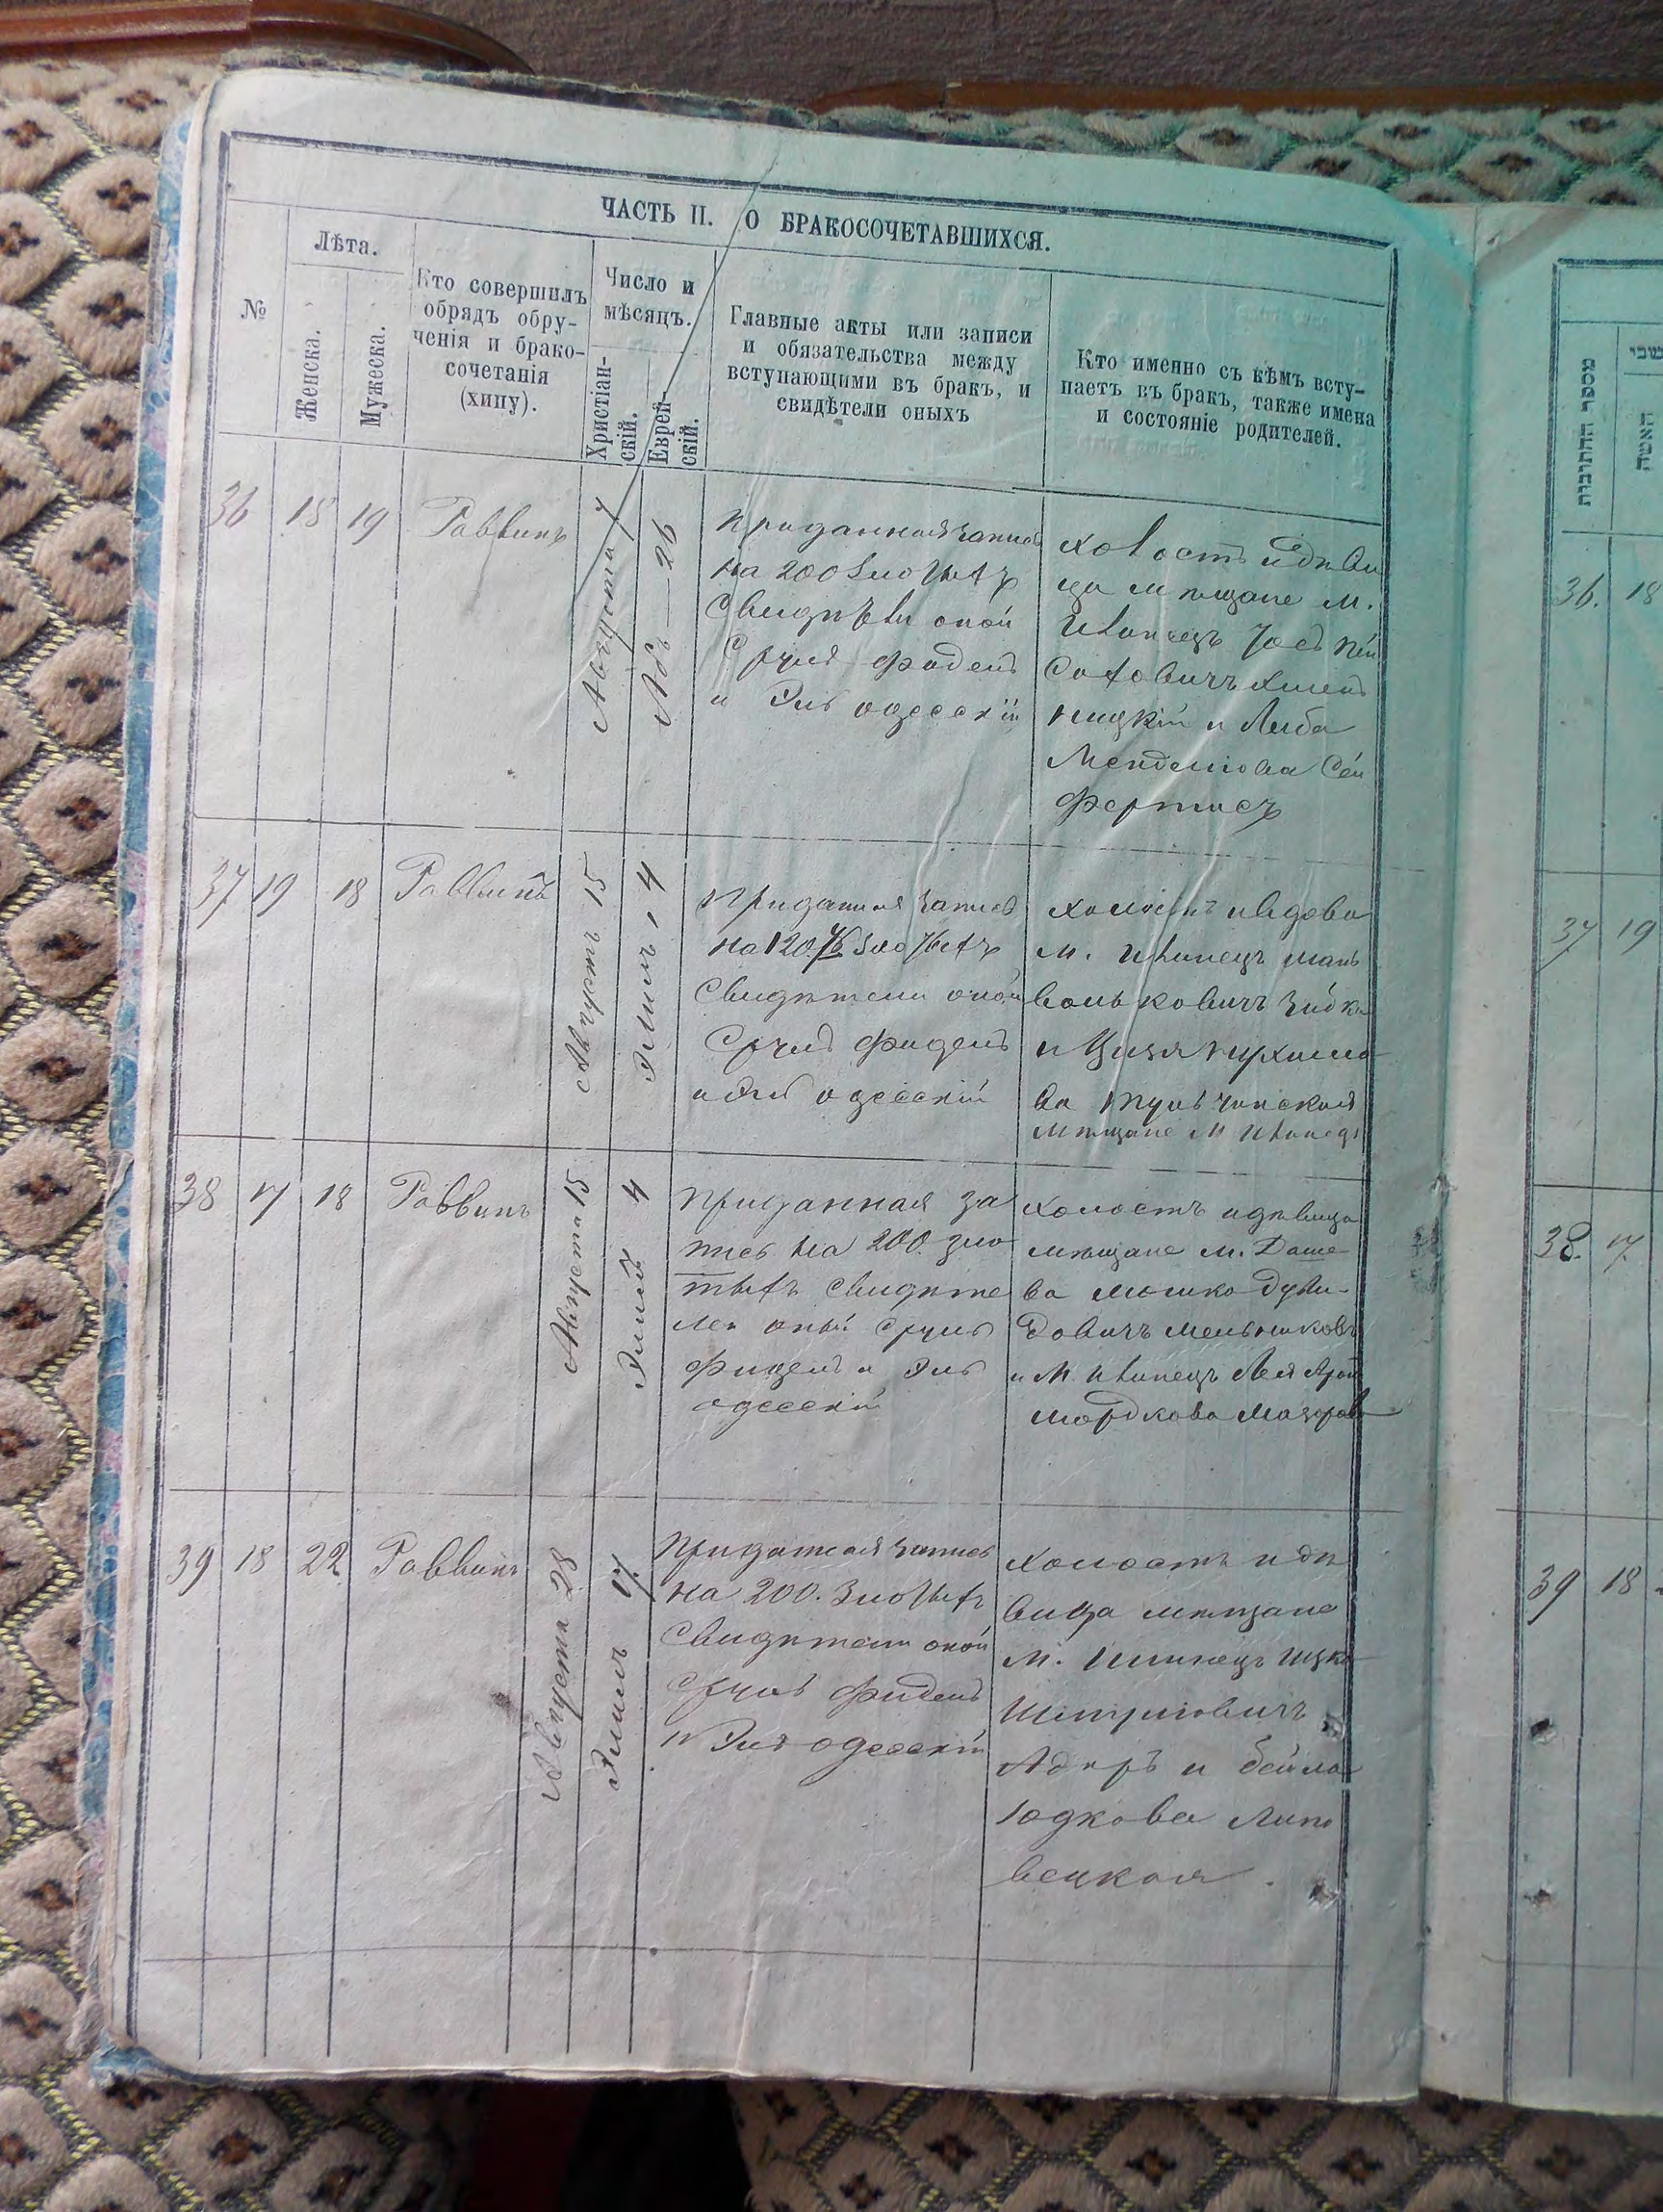 ЧАСТЬ II. О БРАКОСОЧЕТАВШИХСЯ.
№
Лѣта.
Женска.
Мужеска.
Кто совершилъ
обрядъ обру-
ченія и брако-
сочетанія
(хипу).
Число и
мѣсяцъ.
Христіан-
скій.
Еврей-
скій.
Главные акты или записи
и обязательства между
вступающими въ бракъ, и
свидѣтели оныхъ
Кто именно съ кѣмъ всту-
паетъ въ бракъ, также имена
и состояніе родителей.
36
18
19
Раввинъ
Августа 7
Абъ — 26
Приданная запись
на 200 злотыхъ
свидѣтели оной
Сруль Фидель
и Эль Одесскій
холостъ и дѣви
ца мѣщане м.
Илинецъ
ницкій и Либа
Менделиова Сей
37
19
18
Раввинъ
Августъ 15
Элилъ, 4
Приданная запись
на 120 злотыхъ
свидѣтели оной
Сруль Фидель
и Эль Одесскій
холостъ и вдова
м. Илинецъ
Вольковичъ
ва Тульчинская
мѣщане м Илинецъ
38
17
18
Раввинъ
Августа 15
Элилъ 4
Приданная за
пись на 200. зло
тыхъ свидѣте
ли оный Сруль
Фидель и Эль
Одесскій
холостъ и дѣвица
мѣщане м. Даше
ва Мошко Дуви-
довичъ Мельниковъ
и м. Илинецъ Лея
Мордкова
39
18
22
Раввинъ
Августа 28
Элилъ 17.
Приданная запись
на 200. злотыхъ
свидѣтели оной
Сруль Фидель
и Эль Одесскій
холостъ и дѣ
вица мѣщане
м. Илинецъ Ицко
Шмулiовичъ
и Бейла
Юдкова Липо
вецкая.
מספר החתונות
האשה
36.
18
37
19
38.
17.
39
18